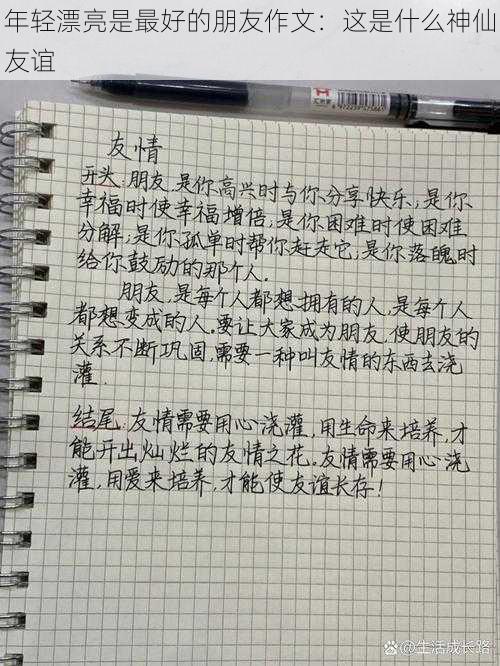 年轻漂亮是最好的朋友作文：这是什么神仙
友谊
友情
开头:朋友,是你高兴时与你分享快乐,;是你
幸福时使幸福增倍,;是你困难时使困难
分解,;是你孤单时帮你赶走它,;是你落魄时
给你鼓励的那个人.
朋友,是每个人都想拥有的人,是每个人
都想变成的人.要让大家成为朋友,使朋友的
关系不断巩固,需要一种叫友情的东西去浇
灌.
结尾:友情需要用心浇灌,用生命来培养,才
能开出灿烂的友情之花.友情需要用心浇
灌,用爱来培养,才能使友谊长存!
@生活成长路